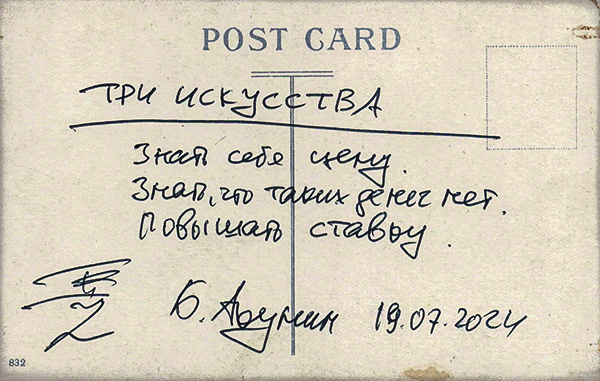 POST CARD
ТРИ ИСКУССТВА
Знать себе цену.
Знать, что таких денег нет.
Повышать ставку.
Б. Акунин 19.07.2024
832